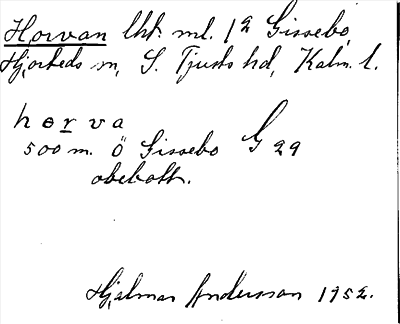 Horvan lht. ml. 1⁠2 Gissebo,
Hjorteds sn, S. Tjusts hd, Kalm. l.
horva
500 m. Ö Gissebo G 29
obebott.
Hjalmar Andersson 1952.